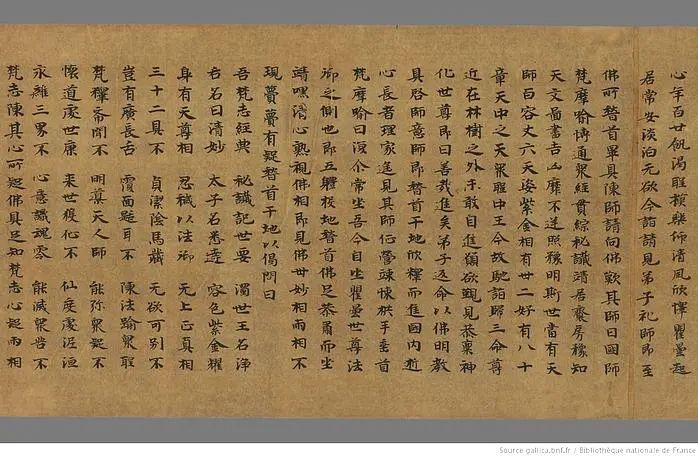 心年百廿飢渴聖模樂仰清風欣懌瞿曇起
居常安淡泊无欲今詣請見弟子礼師即至
佛所稽首畢具陳師請向佛歎其師曰國師
梵摩喻博通衆經貫綜秘讖靖居齋房豫知
天文啚書吉凶靡不逆照豫明斯世當有天
師百容丈六天姿紫金相有卅二好有八十
章天中之天衆聖中王今故馳詣歸三命尊
近在林樹之外不敢自進願欲覲見恭稟神
化世尊即曰善哉進矣弟子返命以佛明教
具啓師意師即稽首于地欣懌而進國内逝
心長者理家進見其師竦悚栱手垂首
梵摩喻曰復尒常坐吾今自坐瞿曇世尊法
御之側也即五體投地稽首佛足恭肅而坐
靖嘿清心熟視佛相即見佛世妙相兩相不
現有疑稽首于地以偈問曰
吾梵志經典 秘讖記世要 濁世王名淨
右名曰清妙 太子名悉達 容色紫金耀
身有天尊相 忍穢以法御 无上正真相
三十二具不 貞潔陰馬藏 无欲可別不
豈有廣長舌 覆面耳不 陳法踰衆聖
梵釋希聞不 明尊天人師 能弥衆疑不
懷道處世康 来世獲仙不 仙度處泥洹
永離三界不 心意識魂零 能滅衆苦不
梵志陳其心所疑佛具足知梵志心疑兩相
Source gallica.bnf.fr / Bibliothèque nationale de France